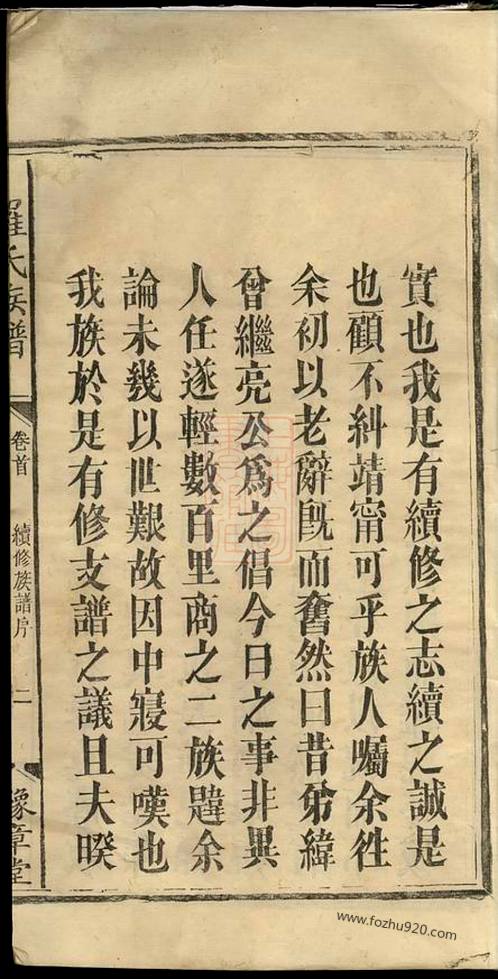 實也我是有續修之志續之誠是
也顧不糾靖甯可乎族人囑余徃
余初以老辭旣而奮然曰昔弟緯
曾繼亮公爲之倡今日之事非異
人任遂輕數百里商之二族韙余
論未幾以世艱故因中寢可嘆也
我族於是有修支譜之議且夫暌
羅氏族譜
卷首
續修族譜序
二
豫章堂
www.fozhu920.com